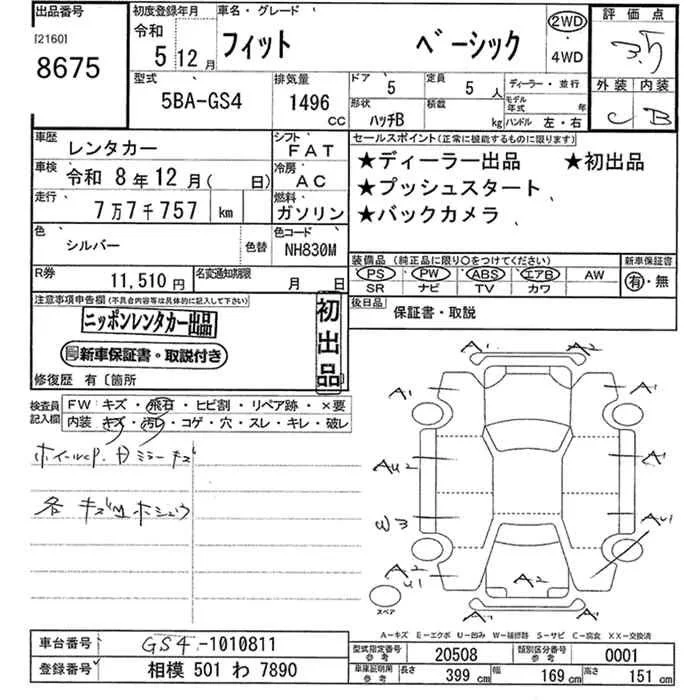 出品番号
[2160]
8675
初度登録年月
令和
5 12月
車名・グレード
フィット ベーシック
2WD
・
4WD
評価点
3.5
外装 内装
C B
型式
5BA-GS4
排気量
1496
CC
ドア
5
定員
5人
ディーラー・並行
形状
ハッチB
積載
kg
モデル年式 年
ハンドル 左・右
車歴
レンタカー
シフト
FAT
車検
令和 8年12月( 日)
冷房
AC
走行
7万7千757 km
燃料
ガソリン
色
シルバー
色替
色コード
NH830M
R券
11,510円
名変通知期限
月 日
セールスポイント(正常に機能するものに限ります)
★ディーラー出品 ★初出品
★プッシュスタート
★バックカメラ
装備品(純正品に限り〇をつけてください)
PS PW ABS エアB AW
SR ナビ TV カワ
新車保証書
有・無
後日品
保証書・取説
注意事項申告欄(不具合内容等は具体的に記入して下さい)
ニッポンレンタカー出品
新車保証書・取説付き
初出品
修復歴 有〔箇所
検査員
記入欄
FW キズ・飛石・ヒビ割・リペア跡・×要
内装 キズ・汚レ・コゲ・穴・スレ・キレ・破レ
ミラーキズ
各キズ
A1 A2
A1 A1
AU2
W3 AU1
A2
U1
A2
A2
スペア
A-キズ E-エクボ U-凹み W-補修跡 S-サビ C-腐食 XX-交換済
車台番号
GS4-1010811
登録番号
相模 501 わ 7890
型式指定番号
参考
20508
類別区分番号
参考
0001
車庫証明用
参考
長さ
399cm
幅
169cm
高さ
151cm